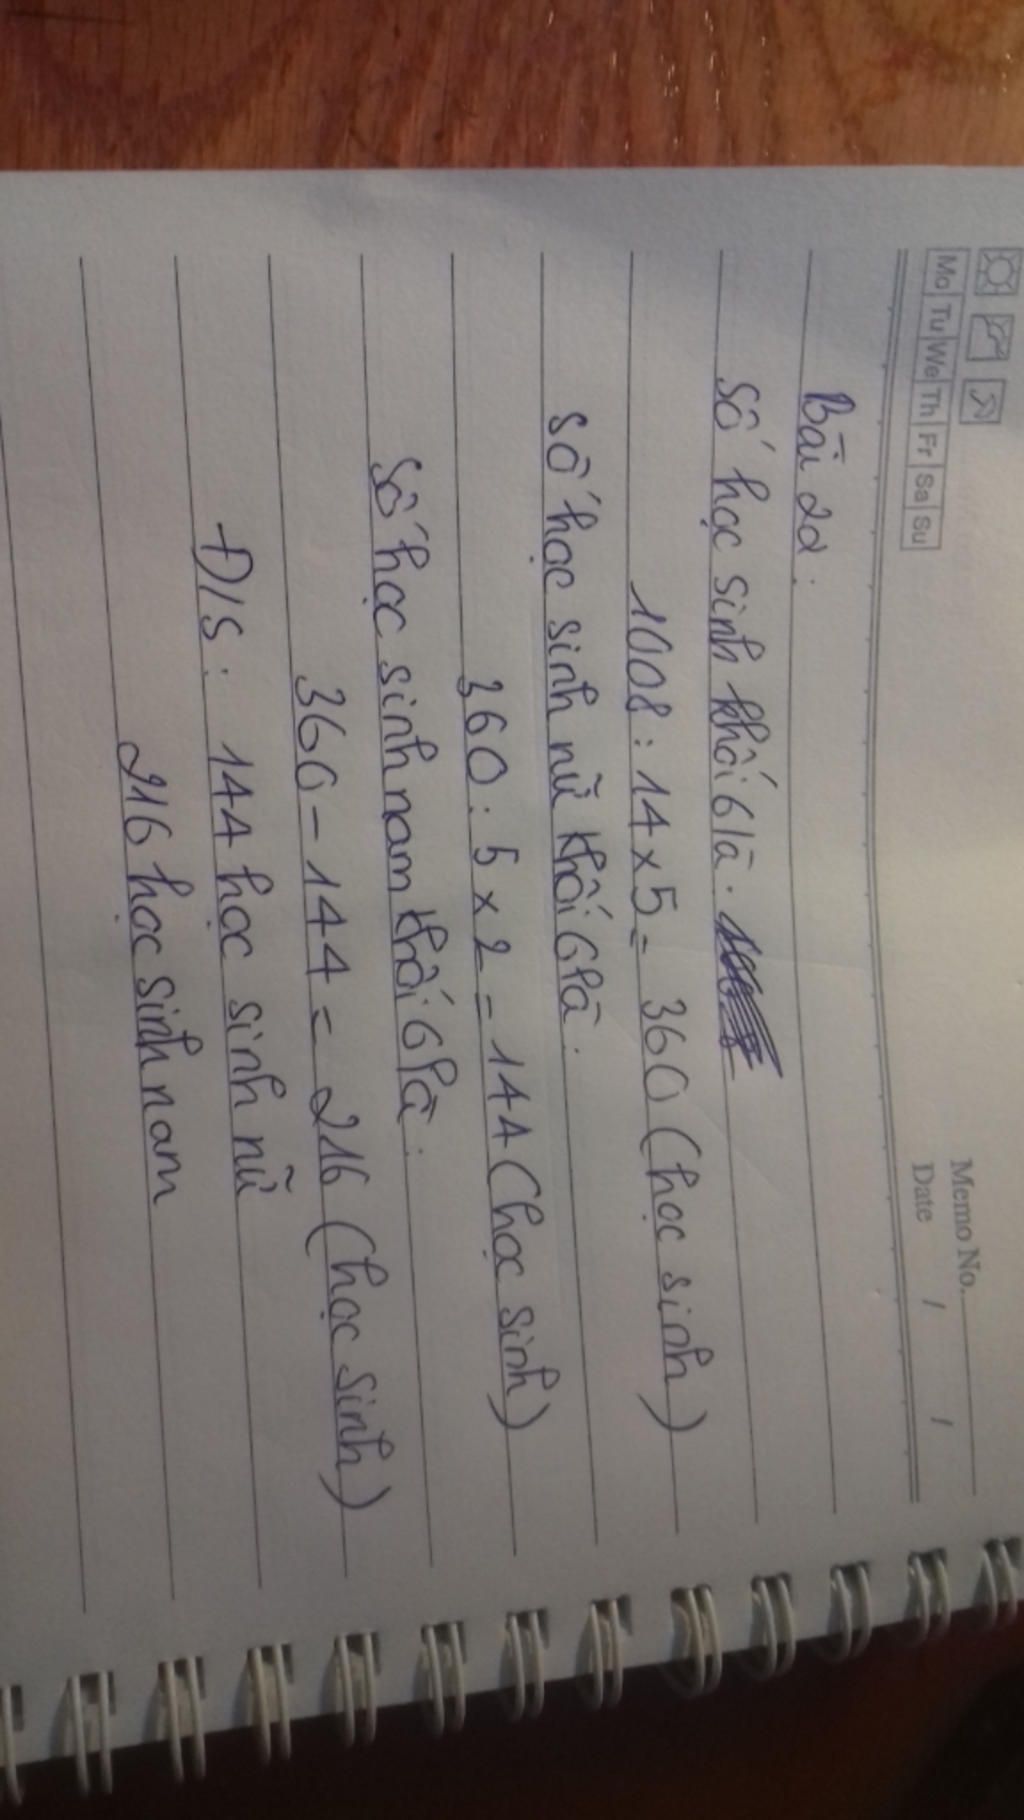 Memo No.
Mo Tu We Th Fr Sa Su
Date / /
Bài 22:
Số học sinh khối 6 là:
1008 : 14 x 5 = 360 (học sinh)
Số học sinh nữ khối 6 là:
360 : 5 x 2 = 144 (học sinh)
Số học sinh nam khối 6 là:
360 - 144 = 216 (học sinh)
Đ/S: 144 học sinh nữ
216 học sinh nam